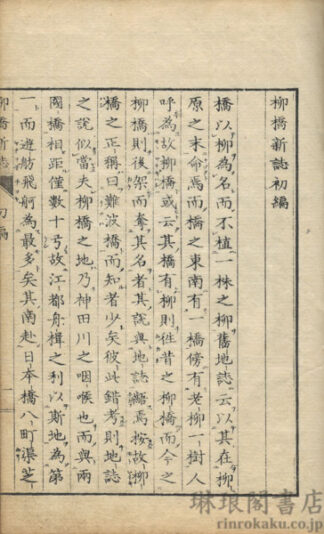 柳橋新誌初編
橋以柳為名而不植一株之柳舊地誌云以其在柳
原之末命焉而橋之東南有一橋傍有老柳一樹人
呼為故柳橋或云其橋有柳則往昔之柳橋而今之
柳橋則後架而奪其名者其說與地誌焉按故柳
橋之正稱曰難波橋而知者少矣彼此錯考則地誌
之說似當夫柳橋之地乃神田川之咽喉也而與兩
國橋相距僅數十弓故江都舟楫之利以斯地為第
一而遊舫飛舸為最多矣其南赴日本橋八町渠芝
柳橋新誌 初編 一
琳琅閣書店
rinrokaku.co.jp